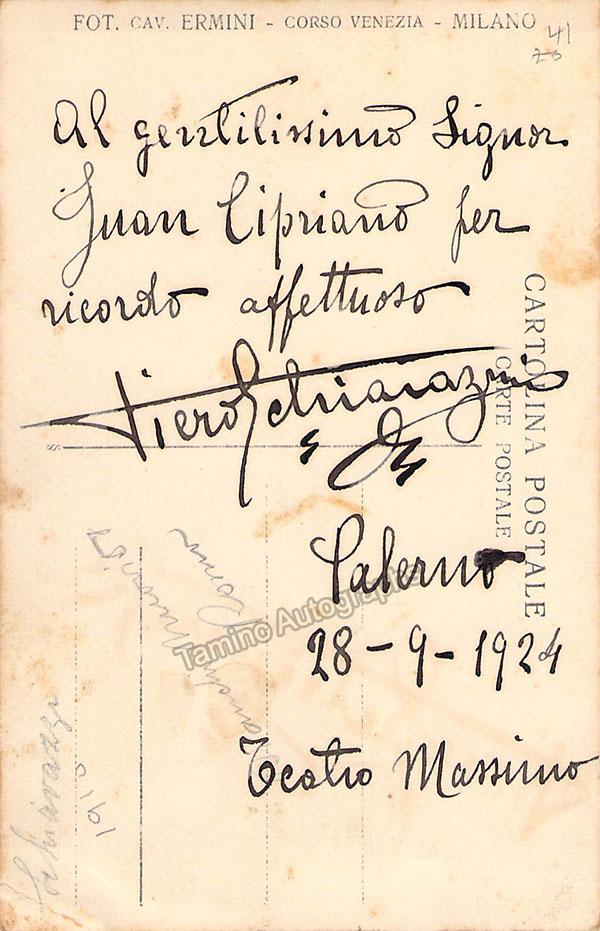 FOT. CAV. ERMINI - CORSO VENEZIA - MILANO
41
Al gentilissimo Signor
Juan Cipriano per
ricordo affettuoso
Piero Schiavazzi
CARTOLINA POSTALE
CARTE POSTALE
Palermo
28-9-1924
Teatro Massimo
Roma
Schiavazzi
1910
Tamino Autographs